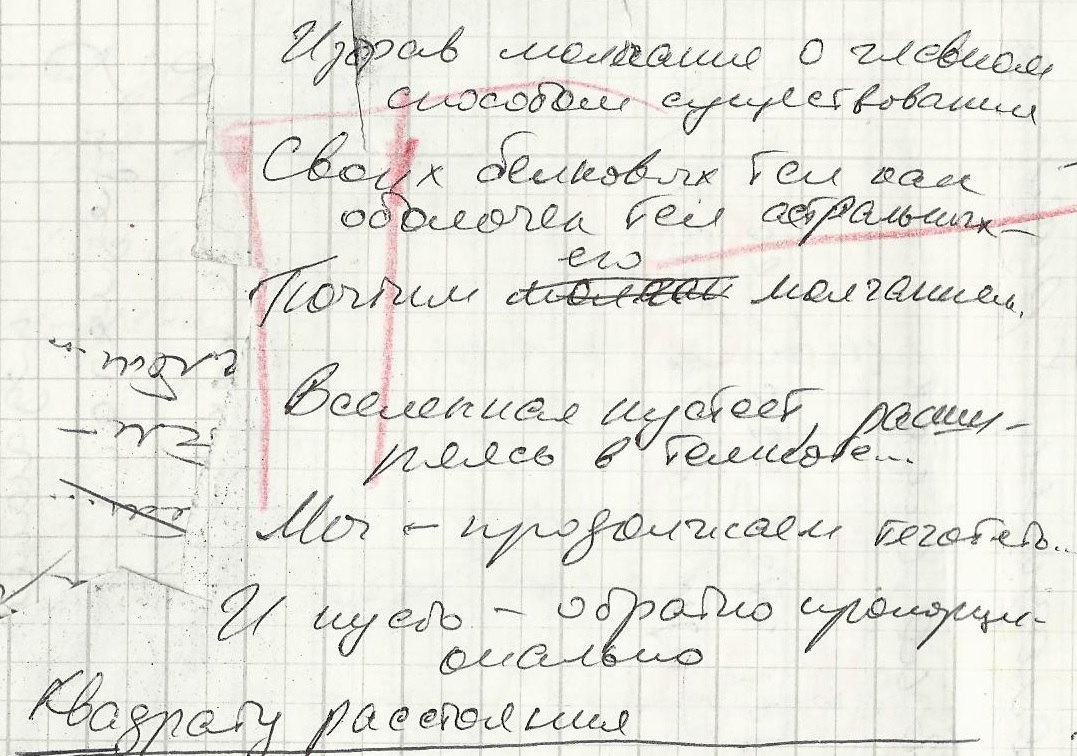 Избрав молчание о главном
способом существования
Своих белковых тел как
оболочек тел астральных –
его
Почтим молчанием.
Вселенная пустеет, расши-
ряясь в темноте...
Мы – продолжаем тяготеть...
И пусть – обратно пропорци-
онально
Квадрату расстояния